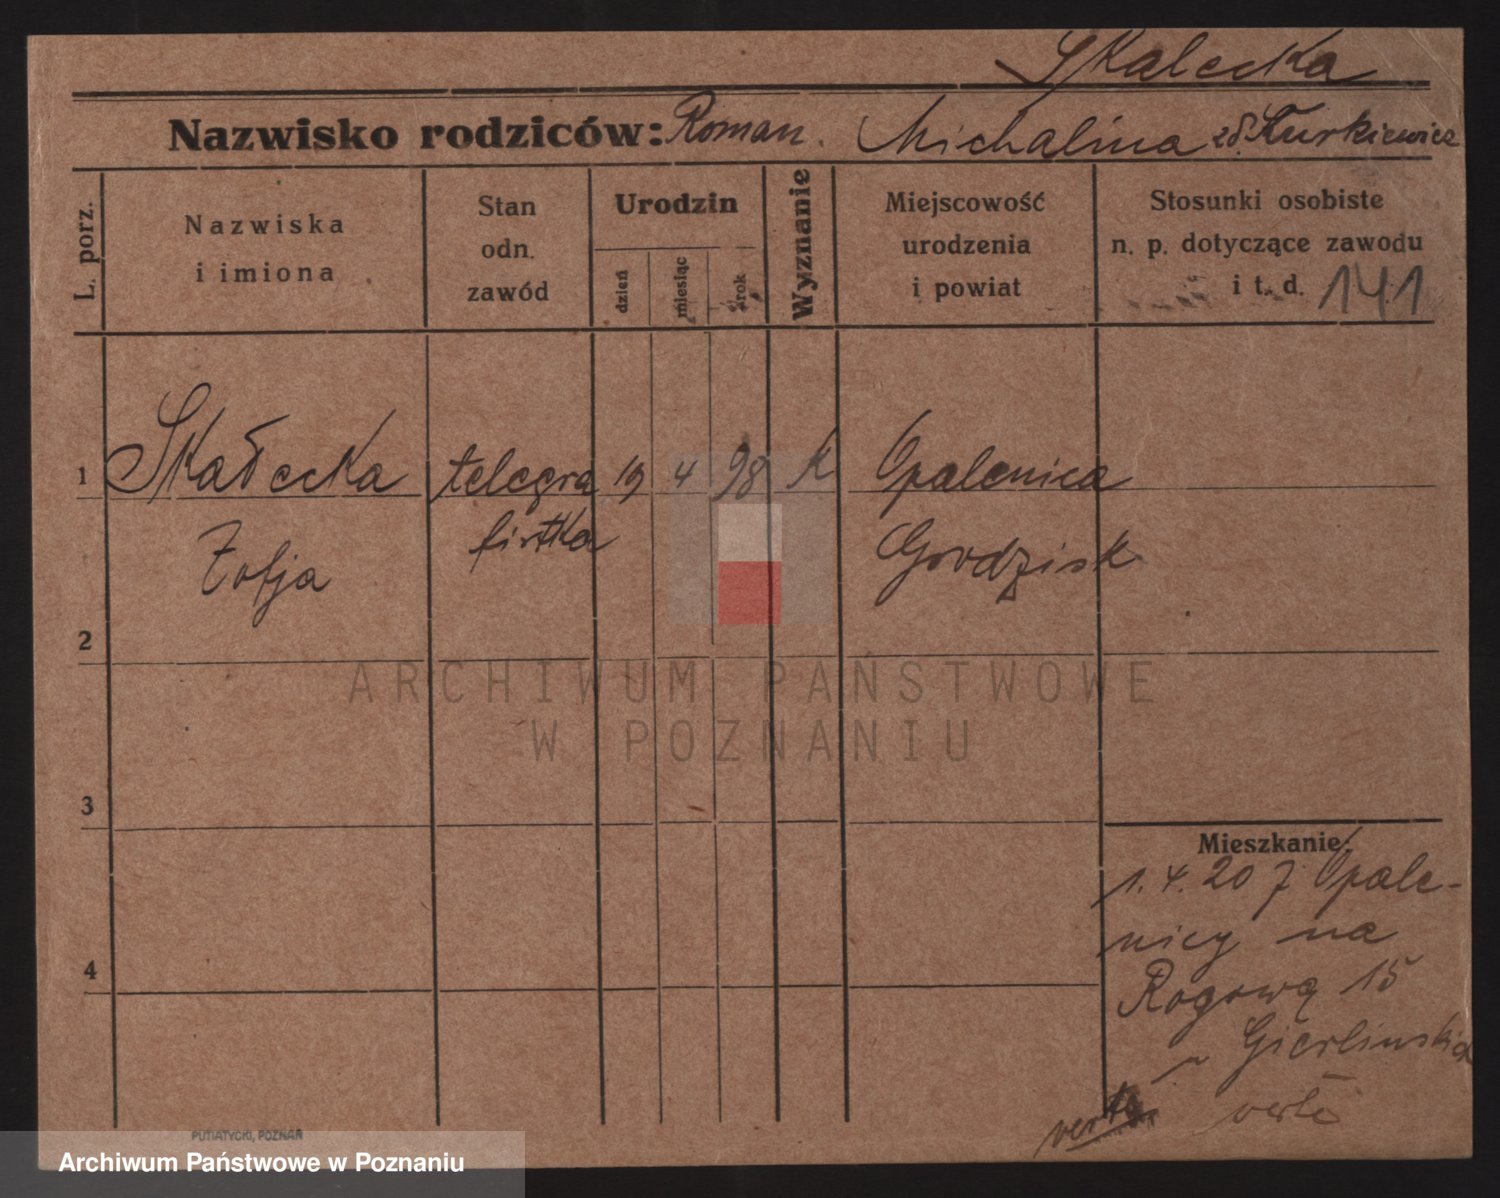 Skalecka
Nazwisko rodziców: Roman. Michalina zd. Kurkiewicz
L. porz.
Nazwiska
i imiona
Stan
odn.
zawód
Urodzin
dzień
miesiąc
rok
Wyznanie
Miejscowość
urodzenia
i powiat
Stosunki osobiste
n. p. dotyczące zawodu
i t. d. 141
1 Skałecka telegra 19 4 98 k Opalenica
Zofja fistka Grodzisk
2
ARCHIWUM PAŃSTWOWE
W POZNANIU
3
Mieszkanie:
1. 4. 20 z Opale-
nicy na
4
Rogową 15
u Gierlinskich
verte verte
PUTIATYCKI, POZNAŃ
Archiwum Państwowe w Poznaniu